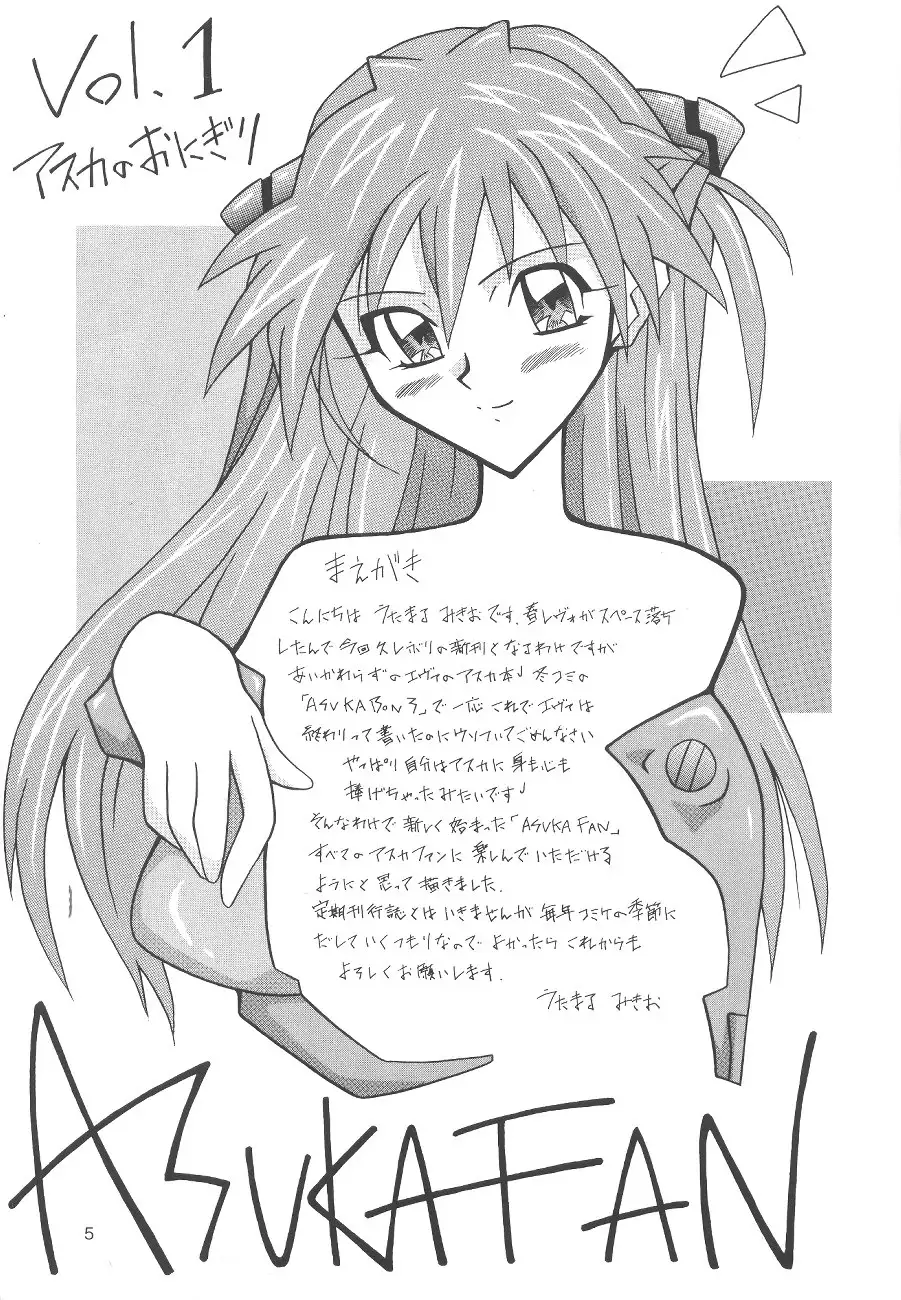 Vol.1
アスカのおにぎり
まえがき
こんにちは うたまる みきおです。春レヴォがスペース落ケ
したんで 今回 久しぶりの新刊となるわけですが
あいかわらずのエヴァのアスカ本♪ 冬コミの
「ASUKA BON 3」で一応 これでエヴァは
終わりって書いたのにウソついてごめんなさい
やっぱり自分はアスカに身も心も
捧げちゃったみたいです♪
そんなわけで新しく始まった「ASUKA FAN」
すべてのアスカファンに楽しんでいただける
ようにと思って描きました。
定期刊行誌とはいきませんが 毎年コミケの季節に
だしていくつもりなので よかったら これからも
よろしくお願いします。
うたまる みきお
ASUKA FAN
5